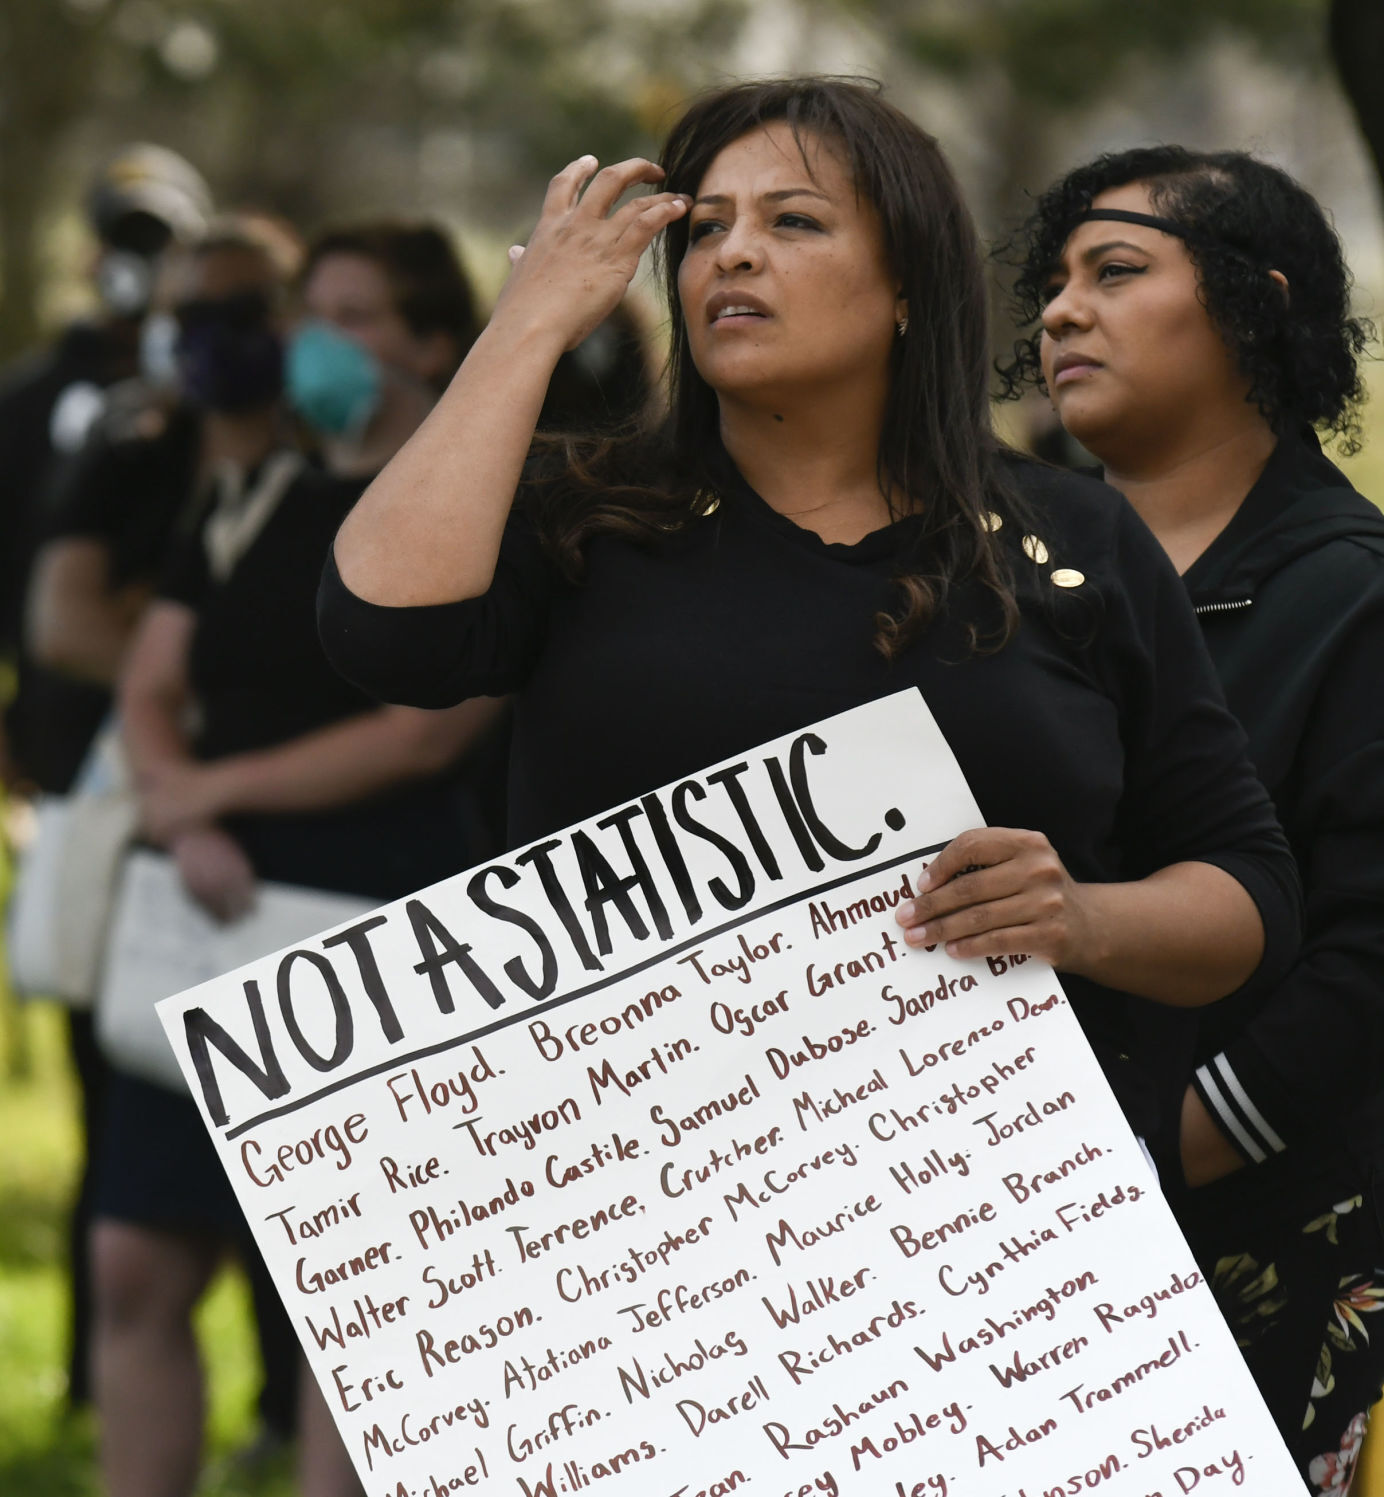 NOT A STATISTIC.
George Floyd. Breonna Taylor. Ahmaud
Tamir Rice. Trayvon Martin. Oscar Grant.
Garner. Philando Castile. Samuel Dubose. Sandra Bla
Walter Scott. Terrence, Crutcher. Micheal Lorenzo Dean.
Eric Reason. Christopher McCorvey. Christopher
McCorvey. Atatiana Jefferson. Maurice Holly. Jordan
Michael Griffin. Nicholas Walker. Bennie Branch.
Williams. Darell Richards. Cynthia Fields.
Rashaun Washington
Mobley. Warren Ragudo.
Adan Trammell.
Sherida
Day.